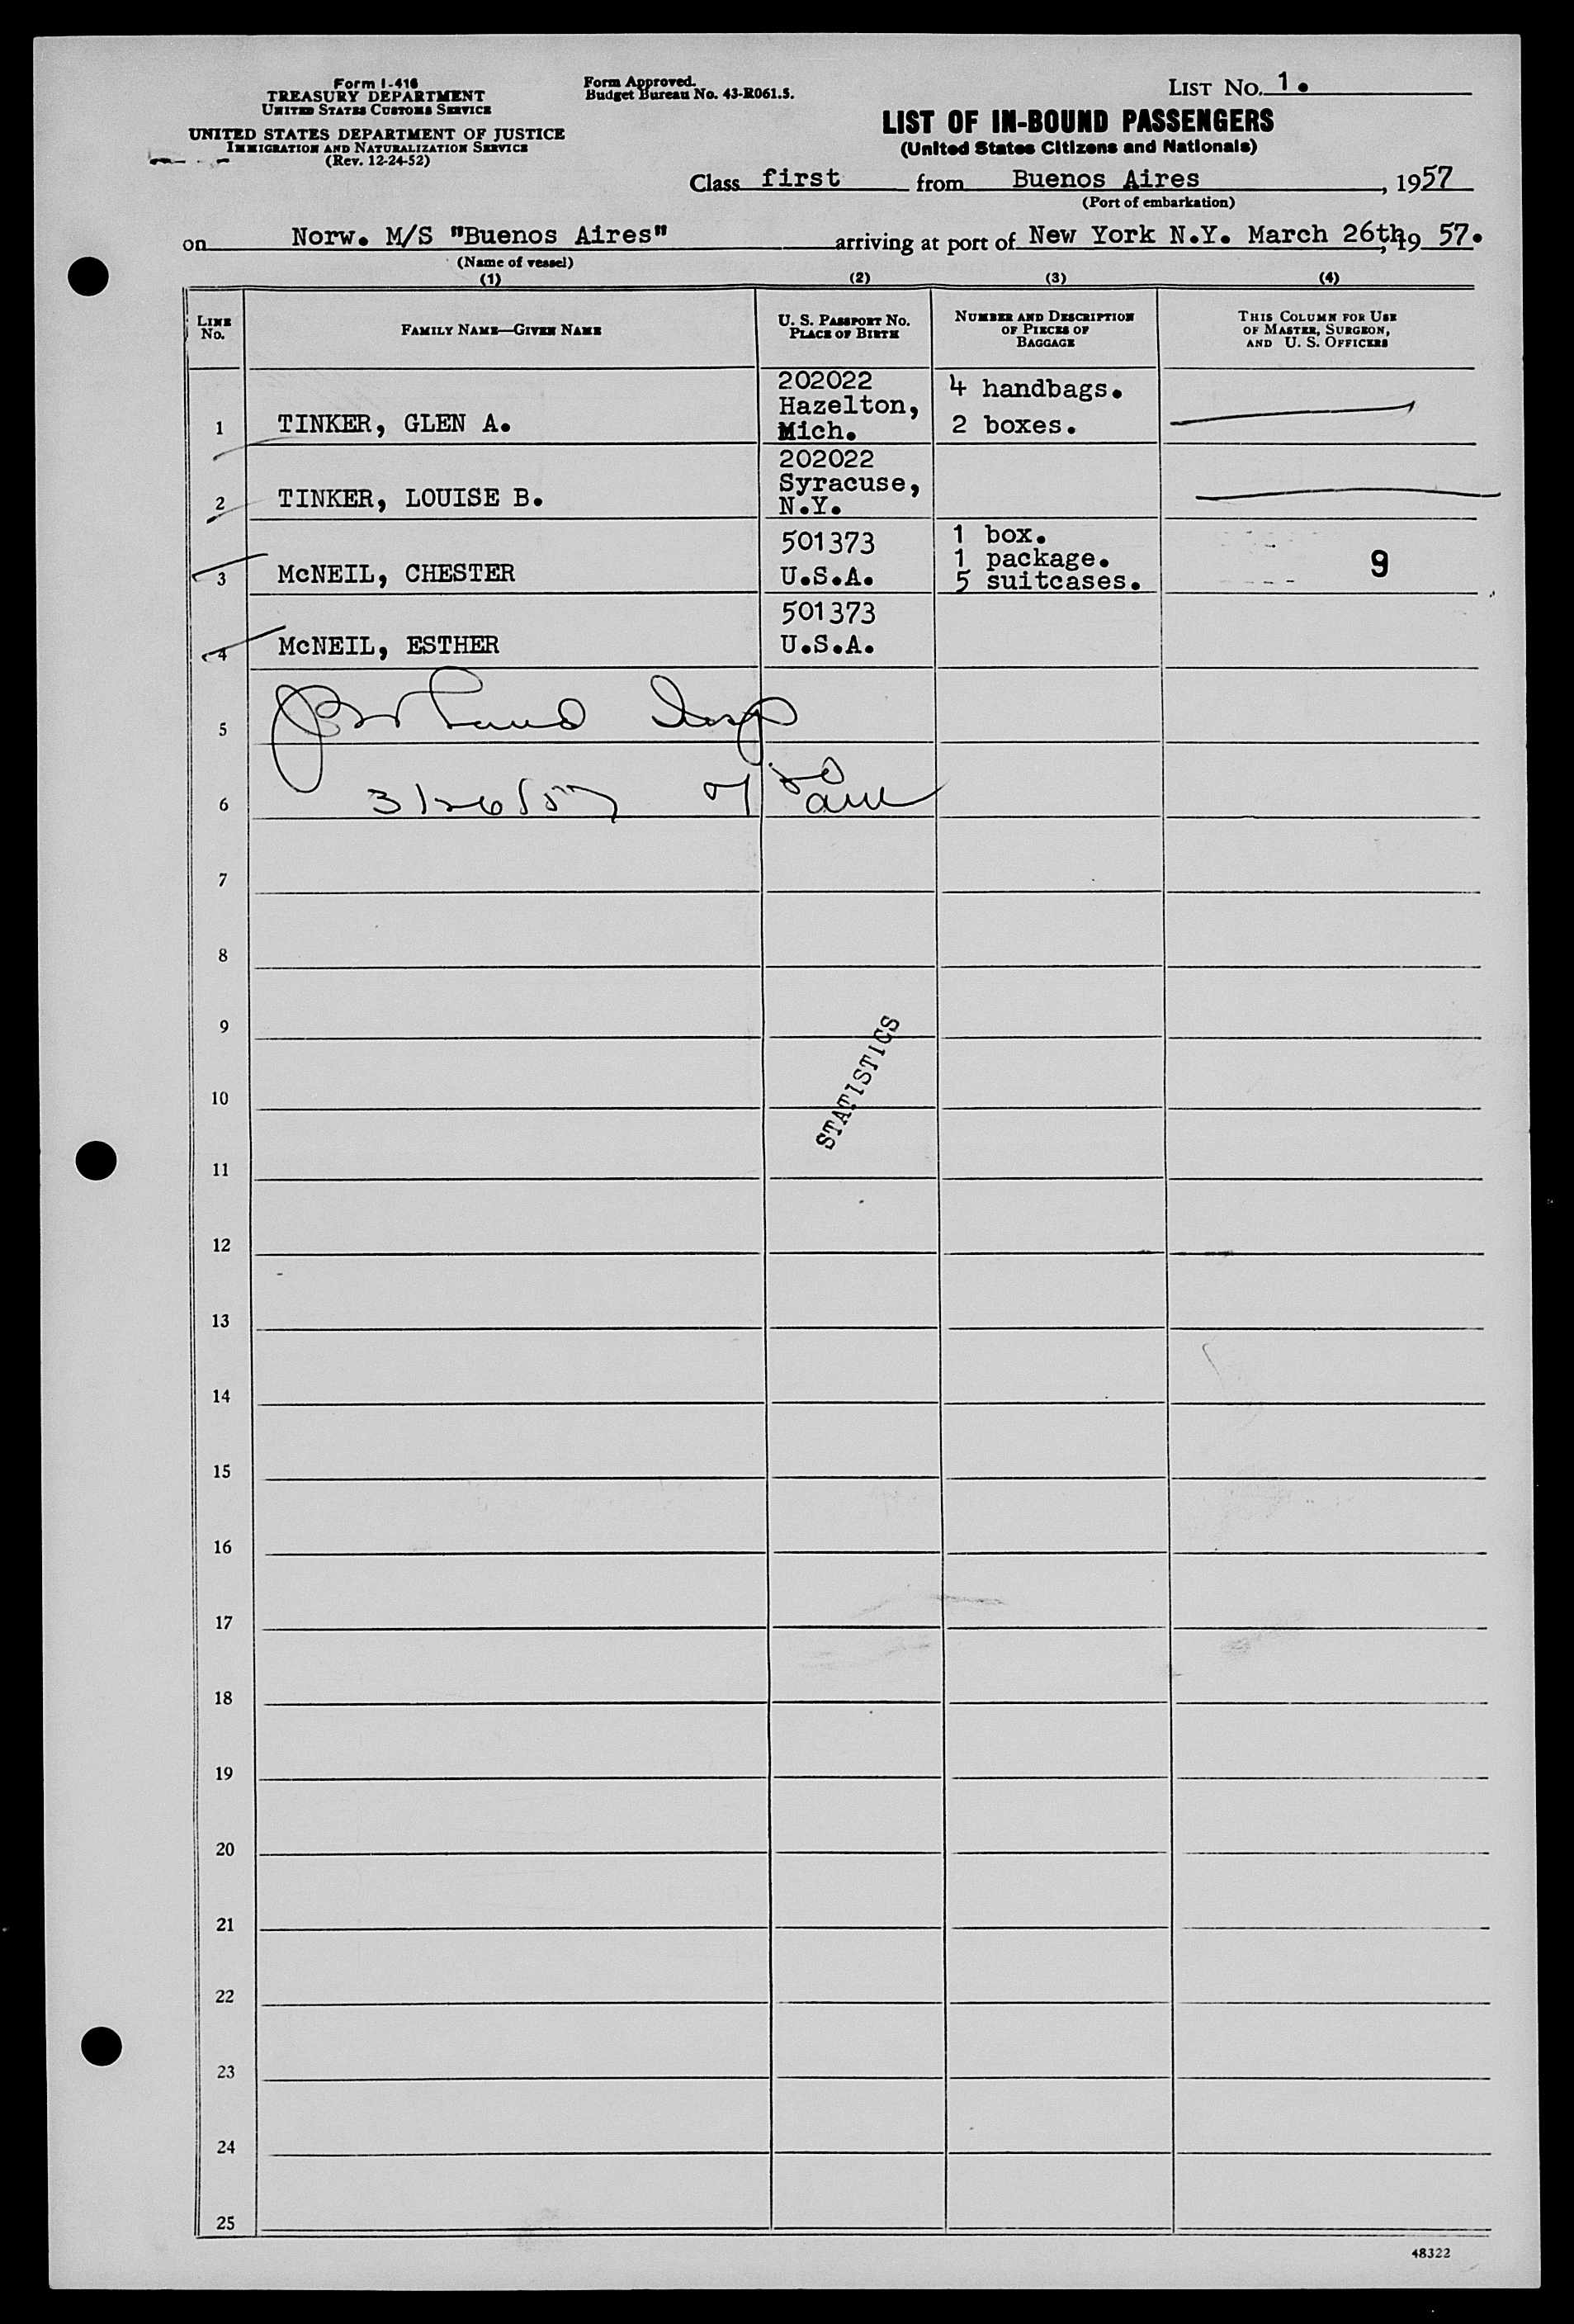 Form I-416
TREASURY DEPARTMENT
UNITED STATES CUSTOMS SERVICE
UNITED STATES DEPARTMENT OF JUSTICE
IMMIGRATION AND NATURALIZATION SERVICE
(Rev. 12-24-52)
Form Approved.
Budget Bureau No. 43-R061.5.
LIST NO. 1.
LIST OF IN-BOUND PASSENGERS
(United States Citizens and Nationals)
Class first from Buenos Aires, 1957
(Port of embarkation)
on Norw. M/S "Buenos Aires" arriving at port of New York N.Y. March 26th, 19 57.
(Name of vessel)
(1) (2) (3) (4)
LINE NO.
FAMILY NAME—GIVEN NAME
U. S. PASSPORT NO.
PLACE OF BIRTH
NUMBER AND DESCRIPTION
OF PIECES OF
BAGGAGE
THIS COLUMN FOR USE
OF MASTER, SURGEON,
AND U. S. OFFICERS
1 TINKER, GLEN A.
202022
Hazelton,
Mich.
4 handbags.
2 boxes.
2 TINKER, LOUISE B.
202022
Syracuse,
N.Y.
3 McNEIL, CHESTER
501373
U.S.A.
1 box.
1 package.
5 suitcases.
9
4 McNEIL, ESTHER
501373
U.S.A.
5
6 3/26/57
7
8
9
10
STATISTICS
11
12
13
14
15
16
17
18
19
20
21
22
23
24
25
48322